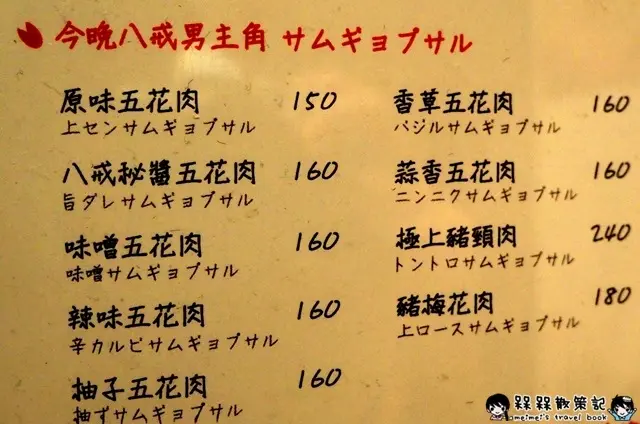 今晚八戒男主角 サムギョプサル
原味五花肉 150
上センサムギョプサル
八戒秘醬五花肉 160
旨ダレサムギョプサル
味噌五花肉 160
味噌サムギョプサル
辣味五花肉 160
辛カルビサムギョプサル
柚子五花肉 160
柚ずサムギョプサル
香草五花肉 160
バジルサムギョプサル
蒜香五花肉 160
ニンニクサムギョプサル
極上豬頸肉 240
トントロサムギョプサル
豬梅花肉 180
上ロースサムギョプサル
槑槑散策記
meimei's travel book